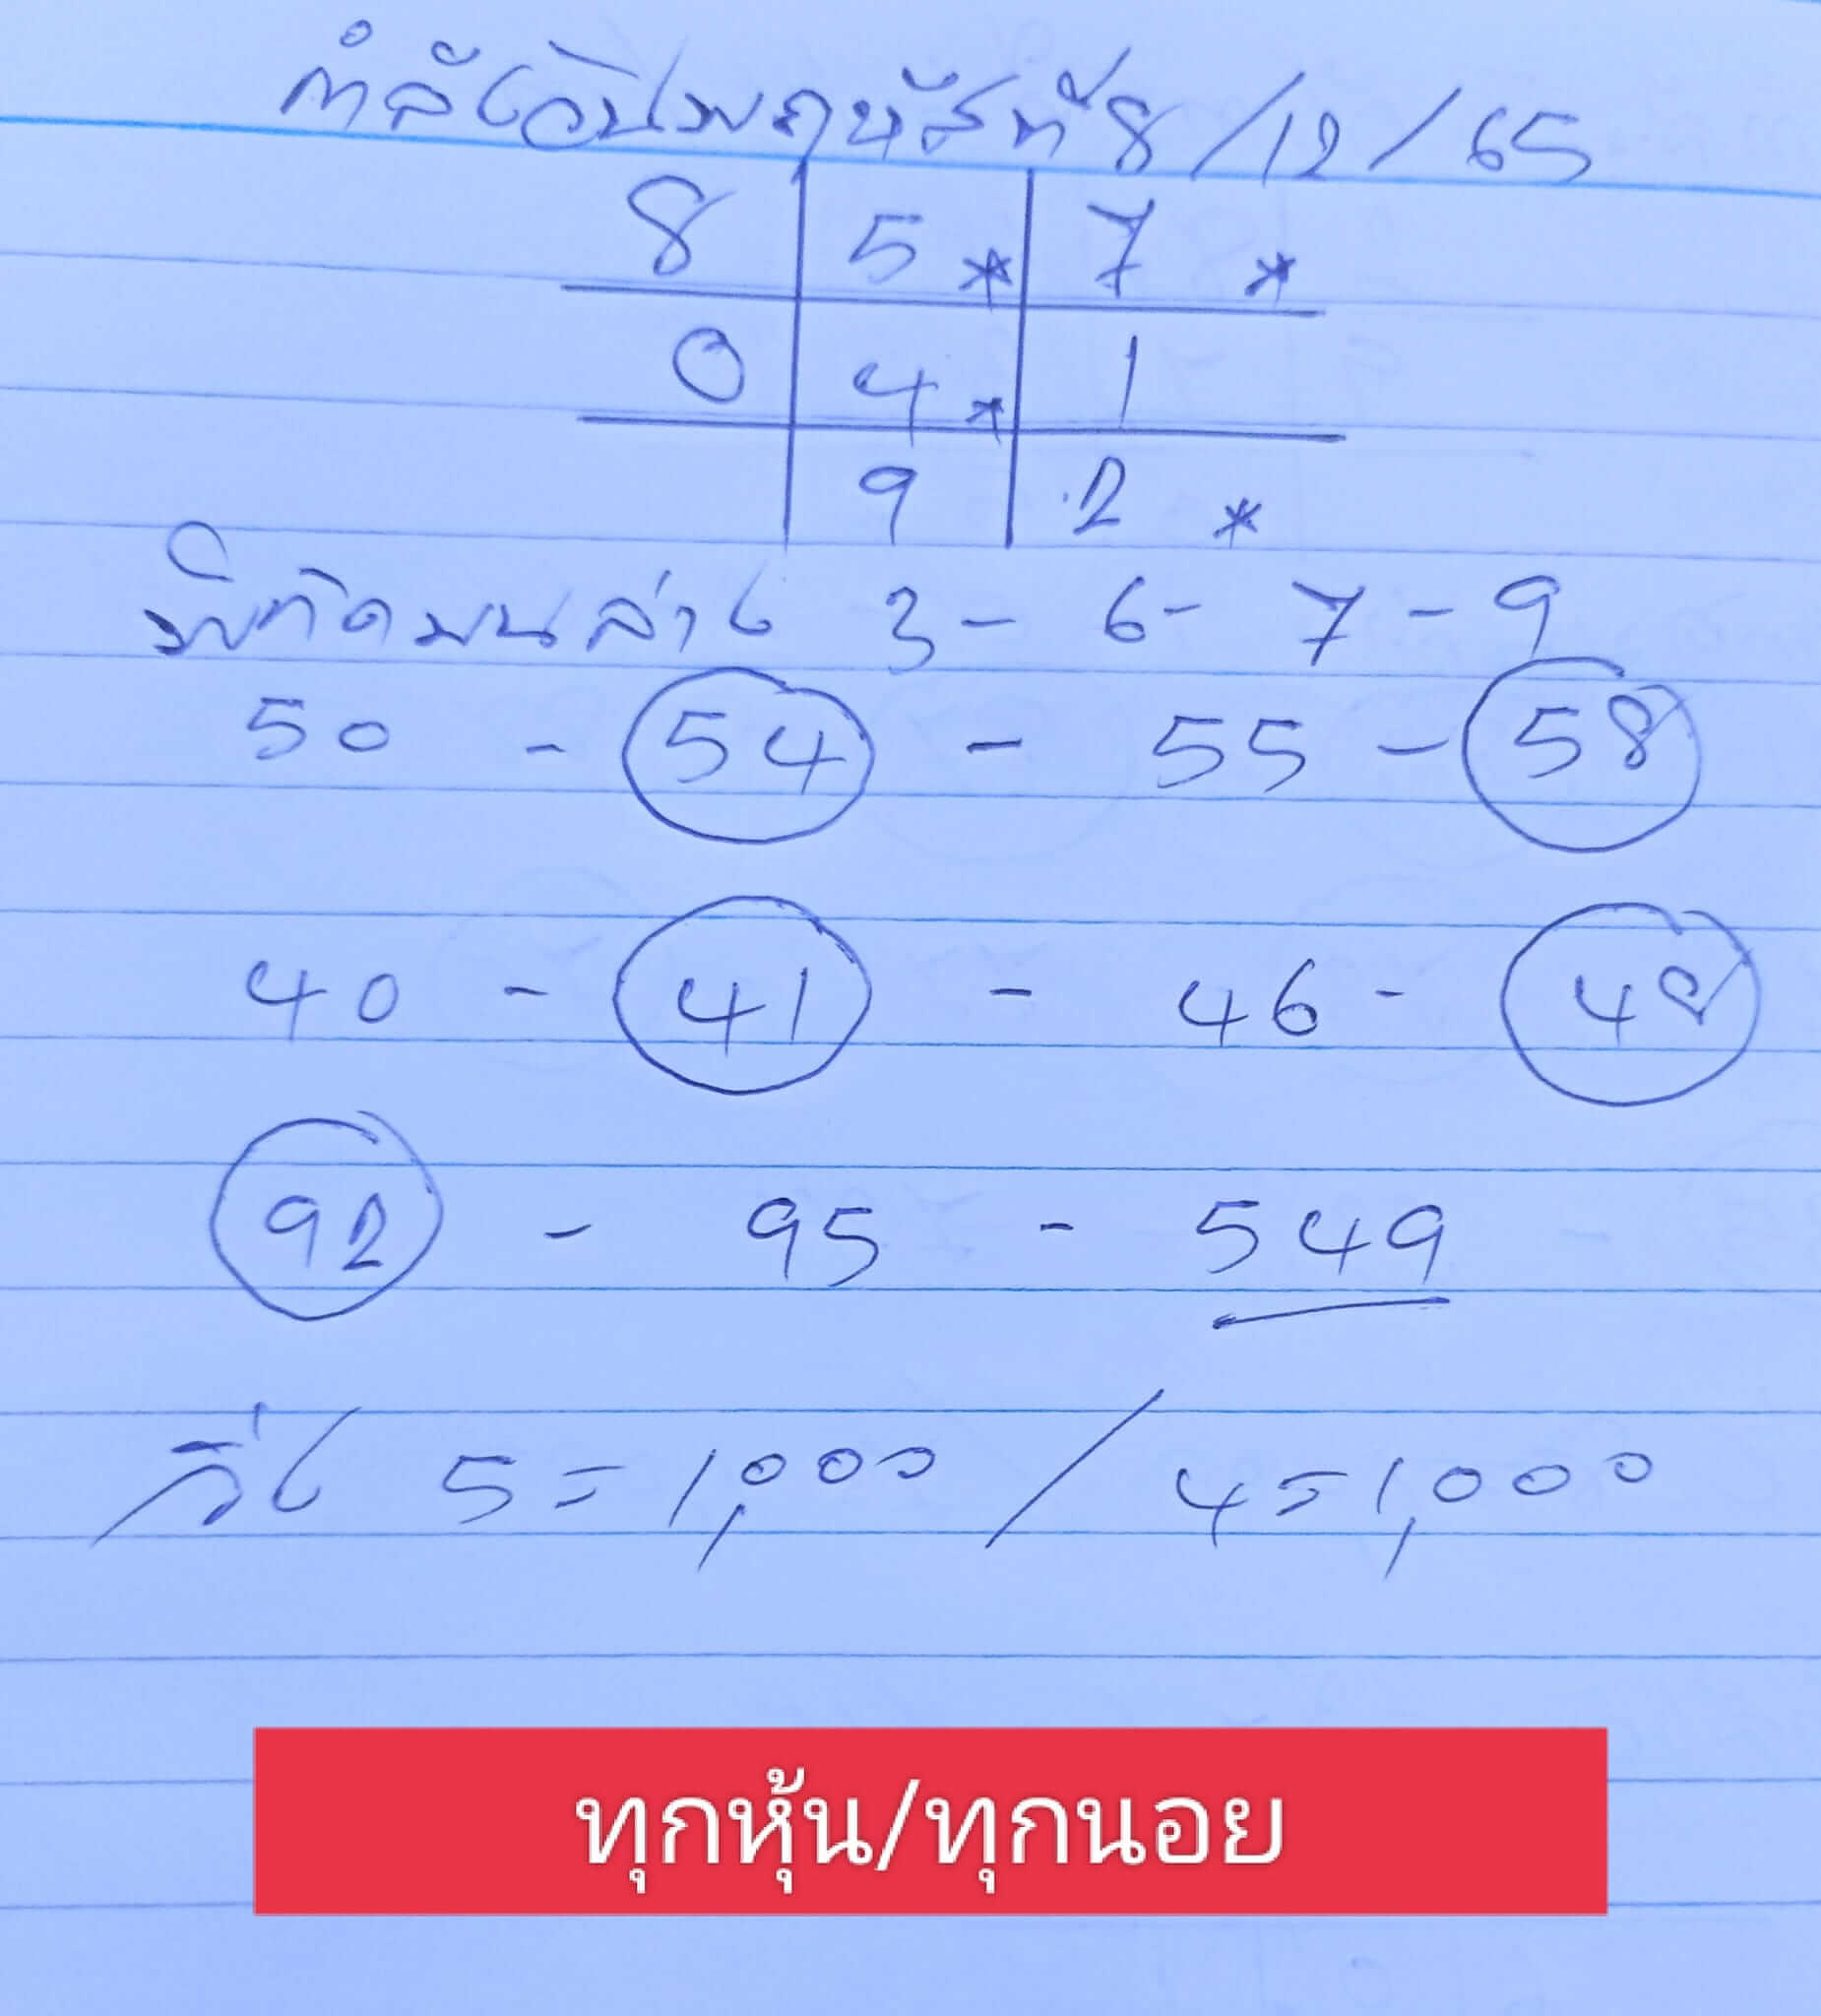 กำลังวันพฤหัสที่ 8/12/65
8 5* 7*
0 4* 1
9 2*
พิกัดบนล่าง 3 - 6 - 7 - 9
50 - 54 - 55 - 58
40 - 41 - 46 - 48
92 - 95 - 549
วิ่ง 5 = 1,000 / 4 = 1,000
ทุกหุ้น/ทุกนอย